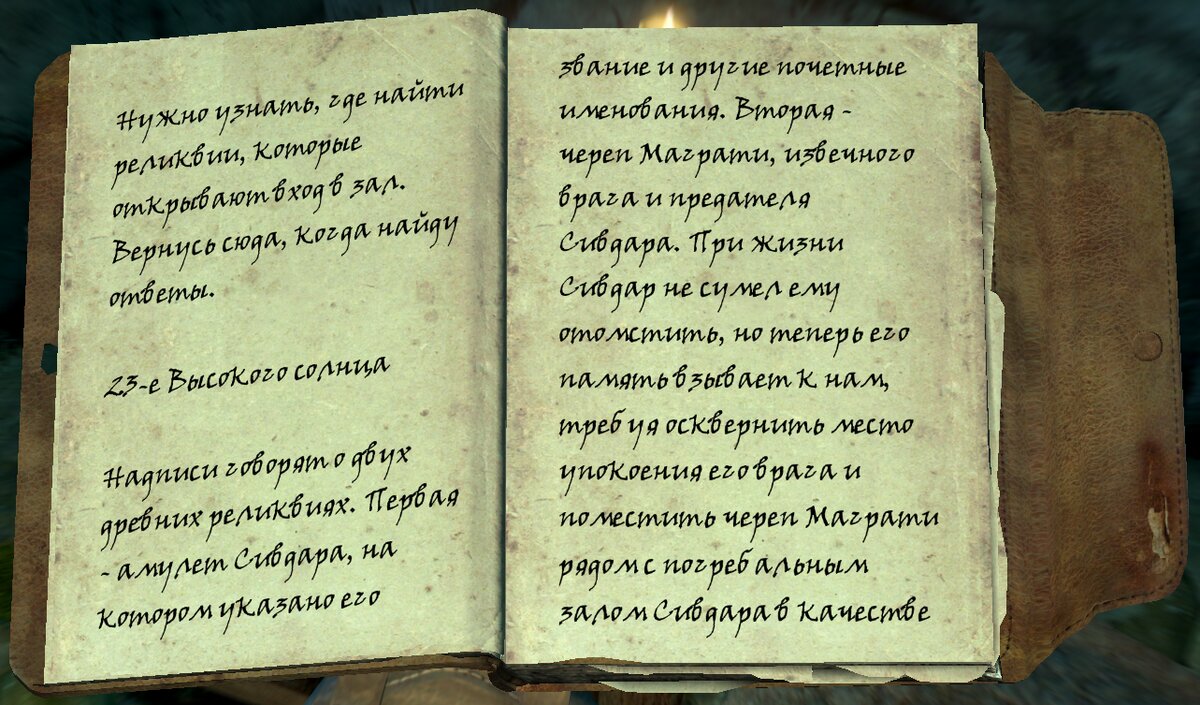 Нужно узнать, где найти
реликвии, которые
открывают вход в зал.
Вернусь сюда, когда найду
ответы.
23-е Высокого солнца
Надписи говорят о двух
древних реликвиях. Первая
- амулет Сивдара, на
котором указано его
звание и другие почетные
именования. Вторая -
череп Маграти, извечного
врага и предателя
Сивдара. При жизни
Сивдар не сумел ему
отомстить, но теперь его
память взывает к нам,
требуя осквернить место
упокоения его врага и
поместить череп Маграти
рядом с погребальным
залом Сивдара в качестве